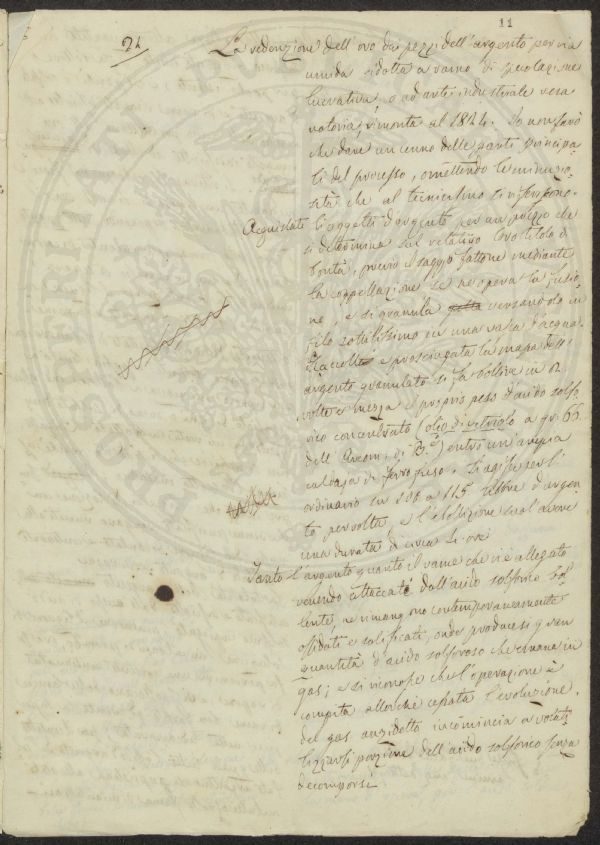 11
24
La redenzione dell'oro da pezzi dell'argento per via
umida ridotta a ramo di speculazione
lucrativa, o ad arte industriale
rimonta al 1824. Io non farò
che dare un cenno delle parti principa-
li del processo, omettendo le minuzio-
sità che al tecnicismo si riferiscono.
Acquistati li oggetti d'argento per un prezzo che
si determina sul relativo loro titolo o
bontà, previo il saggio fattone mediante
la coppellazione se ne opera la fusio-
ne, e si granula versandolo in
filo sottilissimo in una vasca d'acqua.
Raccolta e prosciugata la massa dell'
argento granulato si fa bollire in 2
volte e mezza il proprio peso d'acido solfo-
rico concentrato (olio di vetriolo a gr. 66.
dell'Areom. di B.é) entro un'ampia
caldaja di ferro fuso. Si agisce per l'
ordinario su 100 a 115 libbre d'argen-
to per volta, e l'ebollizione suol avere
una durata di circa ore
Tanto l'argento quanto il rame che vi è allegato
venendo attaccati dall'acido solforico bol-
lente, ne rimangono contemporaneamente
ossidati e salificati, onde producesi gran
quantità d'acido solforoso che emana in
gas; e si riconosce che l'operazione è
compita allorchè cessata l'evoluzione
del gas anzidetto incomincia a volati-
lizzarsi porzione dell'acido solforico senza
decomporsi.